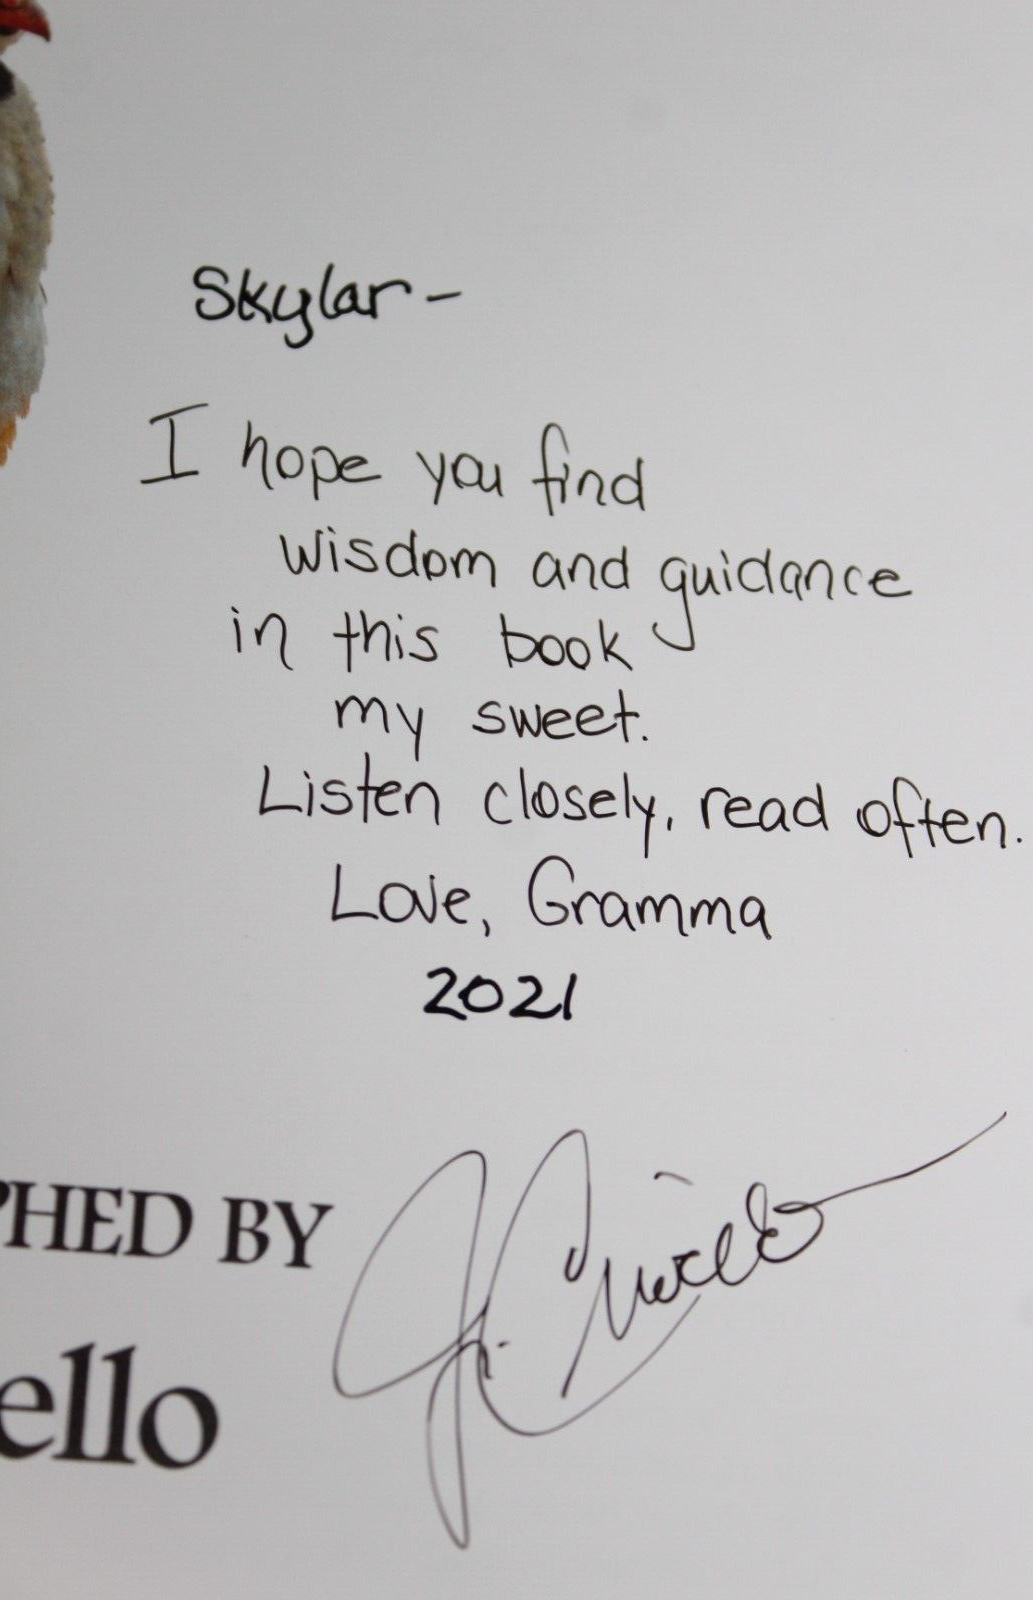 Skylar-
I hope you find
wisdom and guidance
in this book
my sweet.
Listen closely, read often.
Love, Gramma
2021
PHED BY
ello